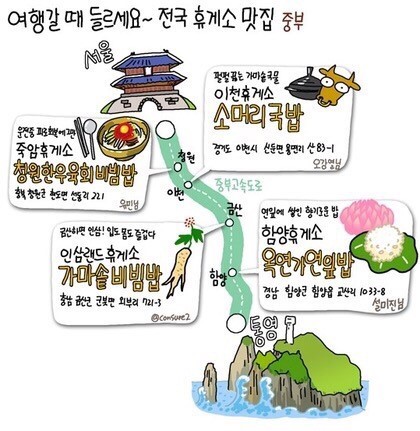 여행갈 때 들르세요~ 전국 휴게소 맛집 중부
서울
펄펄 끓는 가마솥국물
이천휴게소
소머리국밥
경기도 이천시 신둔면 용면리 산 83-1
오강열님
운전중 피로회복에 그만
죽암휴게소
청원한우육회비빔밥
충북 청원군 현도면 선동리 221
유민님
청원
이천
중부고속도로
금산
함양
금산하면 인삼! 입도 몸도 즐겁다
인삼랜드 휴게소
가마솥비빔밥
충남 금산군 군북면 외부리 721-3
@consure2
연잎에 쌓인 향기로운 밥
함양휴게소
옥연가연잎밥
경남 함양군 함양읍 교산리 1033-8
설미진님
통영